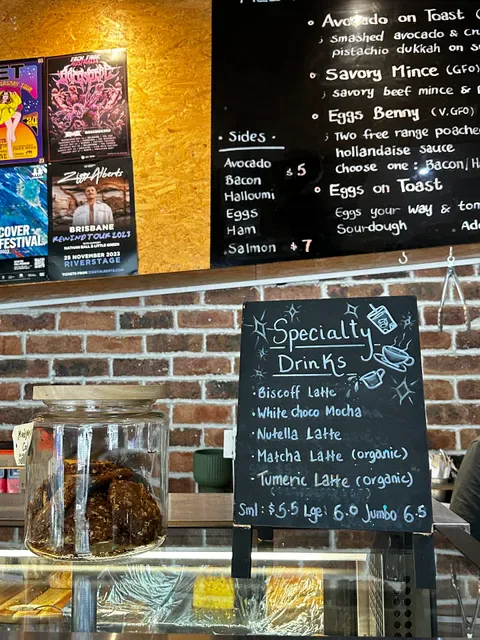 Avocado on Toast
smashed avocado &
pistachio dukkah on
Savory Mince (GFO)
savory beef mince &
Eggs Benny (V.GFO)
Two free range poached
hollandaise sauce
choose one: Bacon/
Eggs on Toast
Eggs your way &
Sourdough
· Sides ·
Avocado
Bacon $5
Halloumi
Eggs
Ham
Salmon $7
Ziggy Alberts
BRISBANE
REWIND TOUR 2023
25 NOVEMBER 2023
RIVERSTAGE
COVER
FESTIVAL
Specialty
Drinks
· Biscoff Latte
· White choco Mocha
· Nutella Latte
· Matcha Latte (organic)
· Tumeric Latte (organic)
Sml: $5.5 Lge: 6.0 Jumbo 6.5